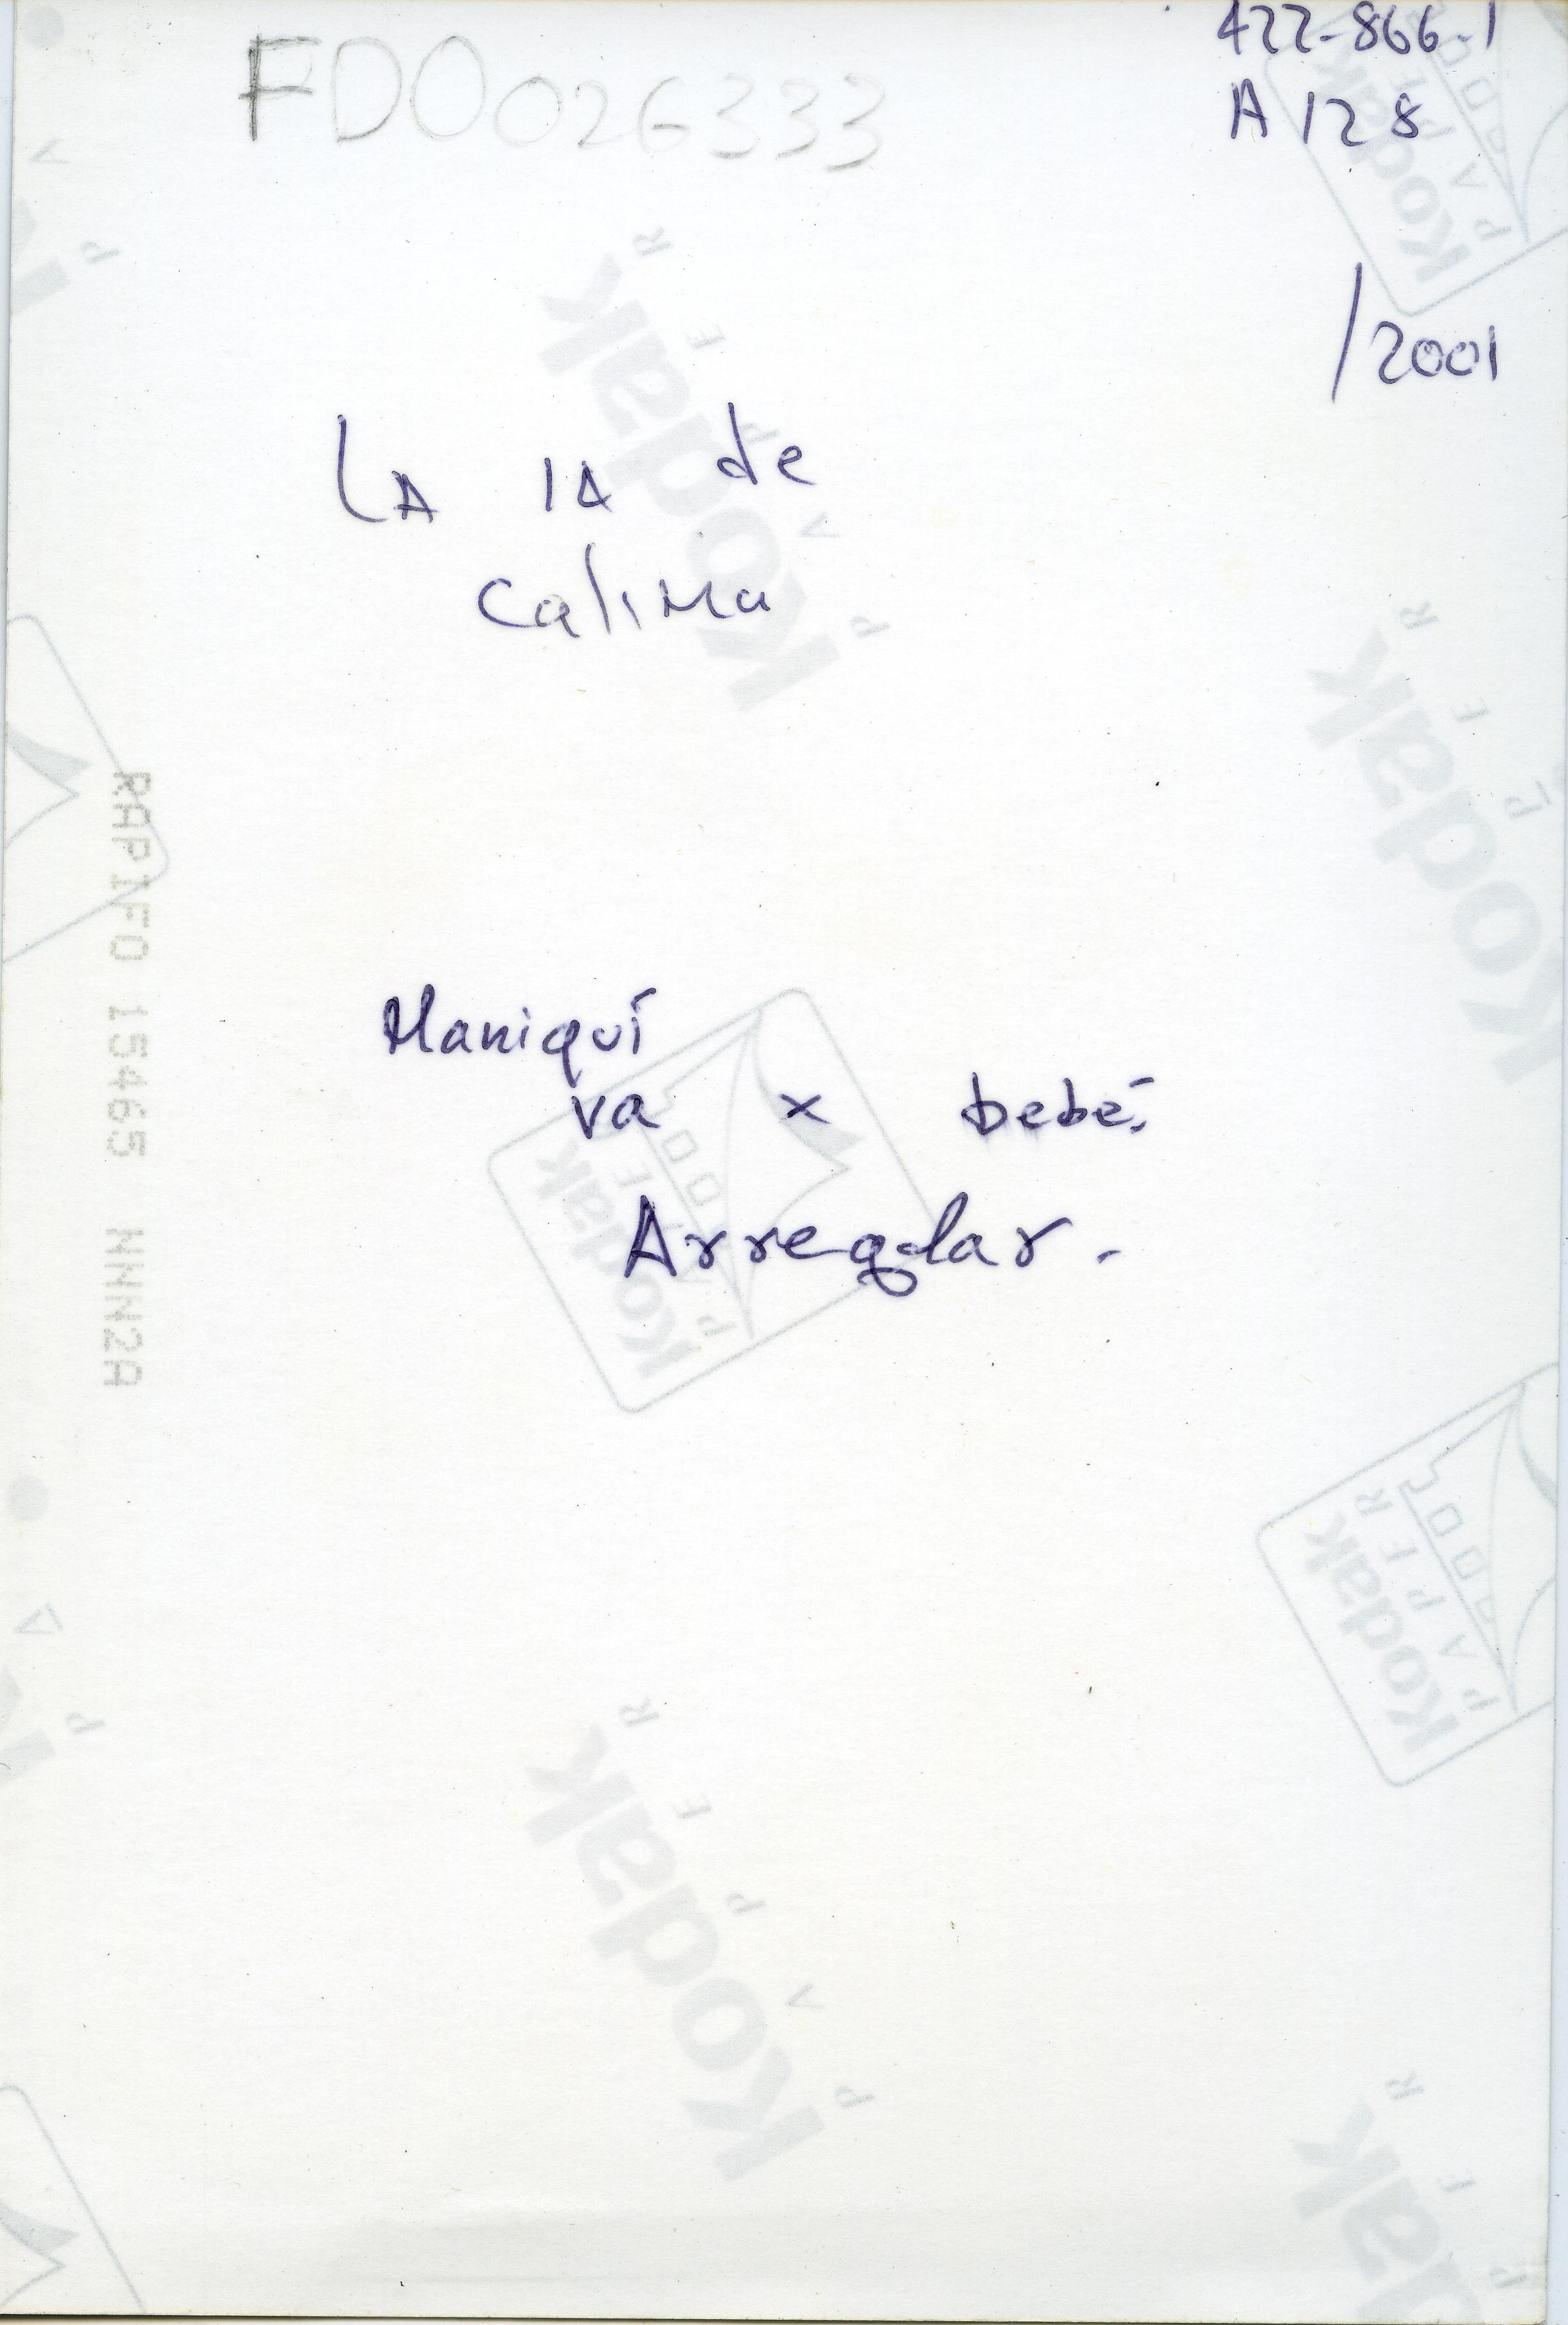 FD0026333
422-866-1
A 128
/2001
LA 1A de
Calima
Maniquí
va x bebé.
Arreglar.
RAPIFO 15465 NNN2A
Kodak
PAPER
Kodak
PAPER
Kodak
PAPER
Kodak
PAPER
Kodak
PAPER